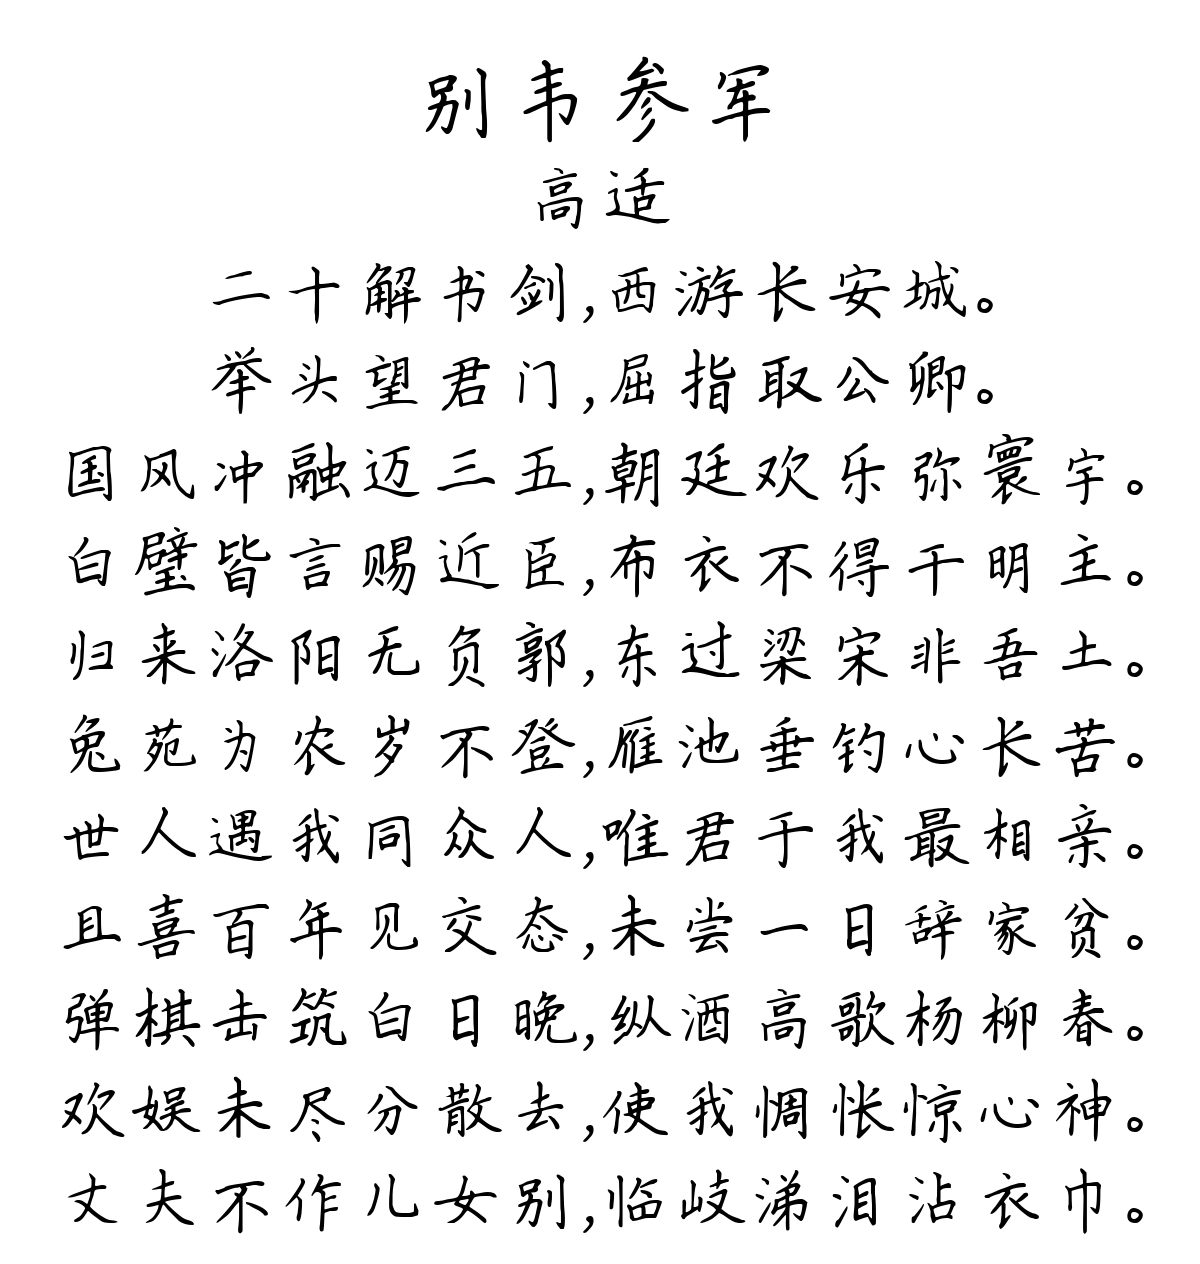 别韦参军
高适
二十解书剑,西游长安城。
举头望君门,屈指取公卿。
国风冲融迈三五,朝廷欢乐弥寰宇。
白璧皆言赐近臣,布衣不得干明主。
归来洛阳无负郭,东过梁宋非吾土。
兔苑为农岁不登,雁池垂钓心长苦。
世人遇我同众人,唯君于我最相亲。
且喜百年见交态,未尝一日辞家贫。
弹棋击筑白日晚,纵酒高歌杨柳春。
欢娱未尽分散去,使我惆怅惊心神。
丈夫不作儿女别,临岐涕泪沾衣巾。